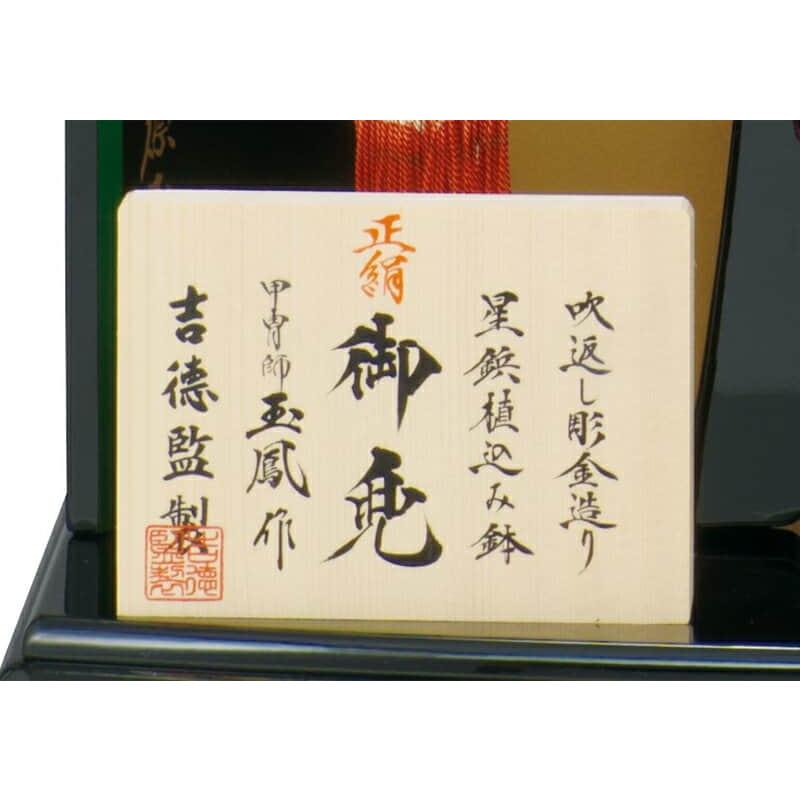 吹返し彫金造り
星鋲植込み鉢
正絹
御兜
甲冑師玉鳳作
吉德監製
吉德監製